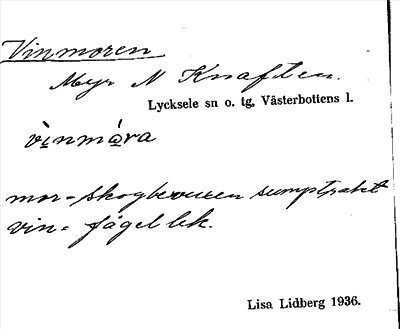 Vinmoren
Myr N Knaften.
Lycksele sn o. tg, Västerbottens l.
vi̱nmå̱ra
mor = skogbevuxen sumptrakt
vin = fågellek.
Lisa Lidberg 1936.